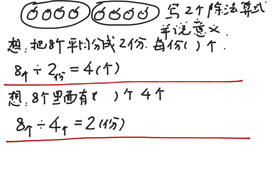 写2个除法算式
并说意义.
想:把8个平均分成2份.每份( )个.
8个÷2份=4(个)
想:8个里面有( )个4个
8个÷4个=2(份)